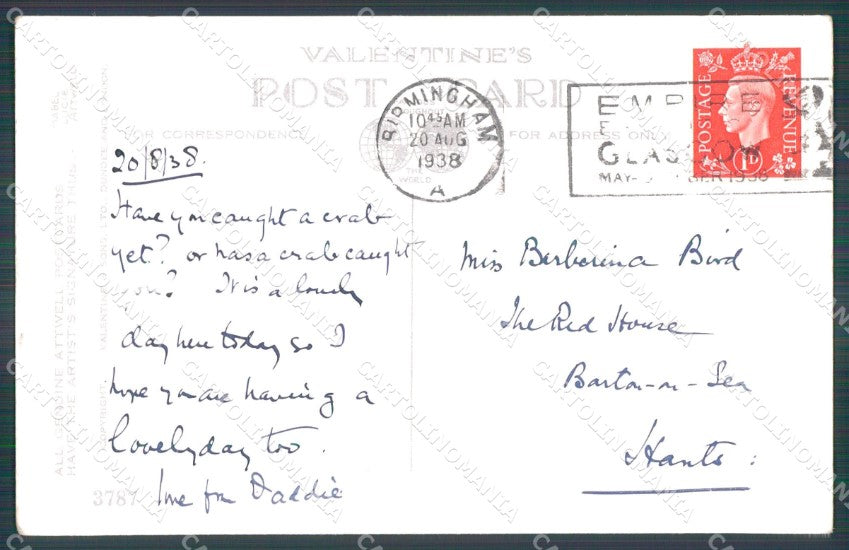 VALENTINE'S
POST CARD
FOR CORRESPONDENCE
FOR ADDRESS ONLY
THE
WORLD
BIRMINGHAM
10 45 AM
20 AUG
1938
A
EMPIRE
GLASGOW
MAY- 1938
POSTAGE REVENUE
1D
20/8/38.
Have you caught a crab
yet? or has a crab caught
you? It is a lovely
day here today so I
hope you are having a
lovely day too.
love from Daddie
Miss Berberina Bird
The Red House
Barton-on-Sea
Hants:
ALL GENUINE ATTWELL POSTCARDS
HAVE THE ARTIST'S SIGNATURE THUS
3787
CARTOLINOMANIA